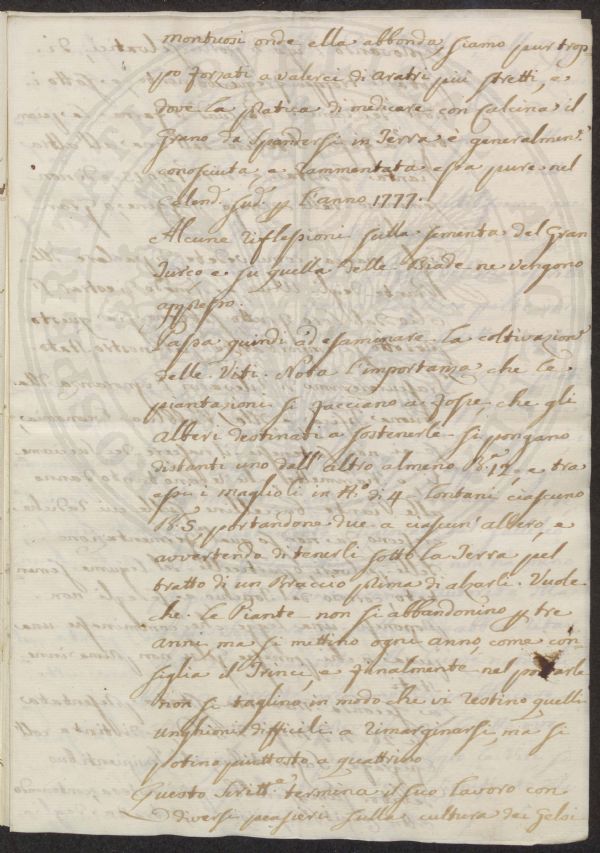 montuosi onde ella abbonda, siamo pur trop
po forzati a valerci di aratri più stretti, e
dove la pratica di medicare con calcina il
Grano da spandersi in Terra è generalmen.
conosciuta, e rammentata essa pure nel
Calend. sud. p l'anno 1777.
Alcune riflessioni sulla sementa del Gran
Turco e su quella delle Biade ne vengono
appresso.
Passa quindi ad esaminare la coltivazion
delle Viti. Nota l'importanza che le
piantazioni si facciano a fosse, che gli
alberi destinati a sostenerle si pongano
distanti uno dall'altro almeno B.a 12, e tra
essi i maglioli in N.o di 4 lontani ciascuno
B.a 5 portandone due a ciascun'albero, e
avvertendo di tenerli sotto la Terra pel
tratto di un Braccio prima di alzarli. Vuole
che le Piante non si abbandonino p tre
anni, ma si mettino ogni anno, come con
siglia il Trinci, e finalmente nel potarle
non si taglino in modo che vi restino quelli
unghioni difficili a rimarginarsi, ma si
potino piuttosto a quattrino
Questo Scritt.e termina il suo lavoro con
diversi pensieri sulla cultura dei Gelsi